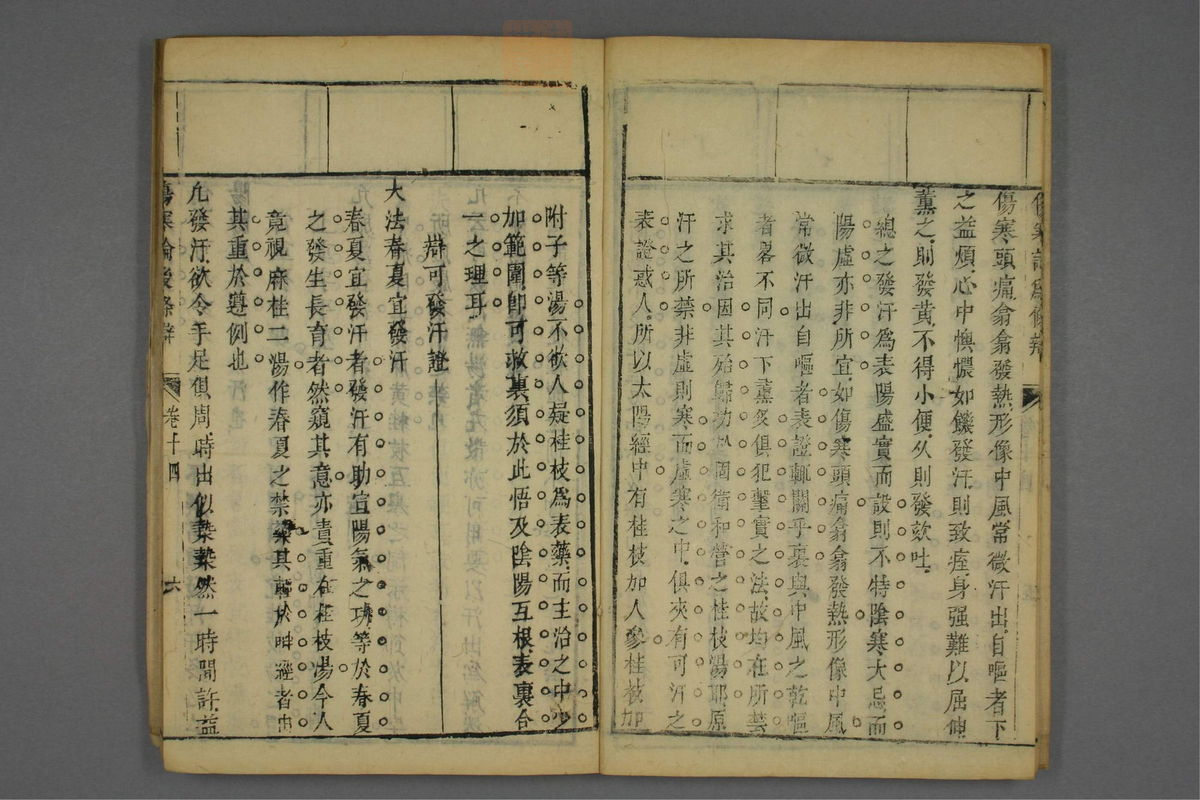 傷寒頭痛翕翕發熱形像中風常微汗出自嘔者下
之益煩心中懊憹如饑發汗則致痓身强難以屈伸
薰之則發黃不得小便灸則發欬吐
總之發汗爲表陽盛實而設則不特陰寒大忌而
陽虛亦非所宜如傷寒頭痛翕翕發熱形像中風
常微汗出自嘔者表證輒關乎裏與中風之乾嘔
者畧不同汗下薰灸俱犯擊實之法故均在所禁
求其治因其殆歸功於固衛和營之桂枝湯耶原
汗之所禁非虛則寒而虛寒之中俱夾有可汗之
表證惑人所以太陽經中有桂枝加人參桂枝加
附子等湯不欲人疑桂枝爲表藥而主治之中少
加範圍卽可救裏須於此悟及陰陽互根表裏合
一之理耳
辯可發汗證
大法春夏宜發汗
春夏宜發汗者發汗有助宣陽氣之功等於春夏
之發生長育者然窺其意亦責重在桂枝湯今人
竟視麻桂二湯作春夏之禁藥其輕於時避者由
其重於遵例也
凢發汗欲令手足俱周時出似漐漐然一時間許益
傷寒論後條辯
卷十四
六